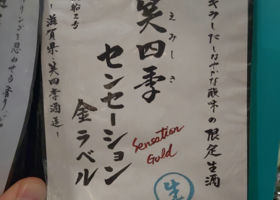 キラーだしなやかな酸味の限定生酒
笑四季
えみしき
センセーション
金ラベル
Sensation
Gold
生
滋賀県・笑四季酒造